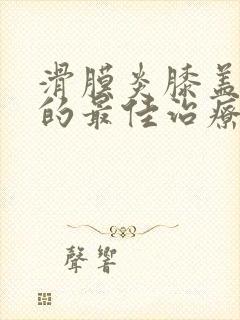 滑膜炎膝盖
的最佳治疗
聲響